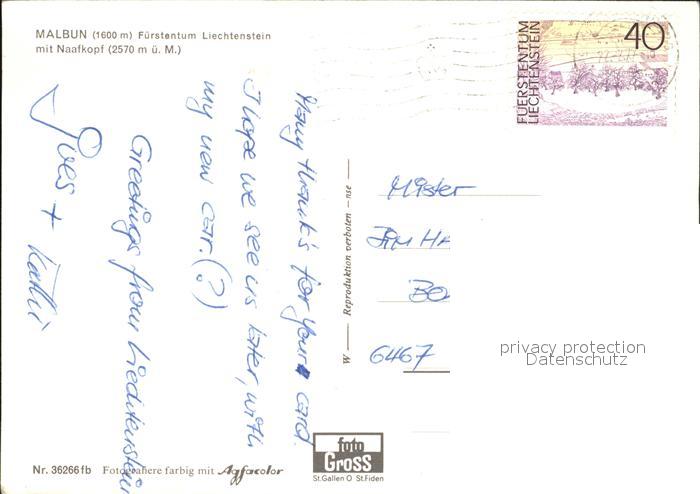 MALBUN (1600 m) Fürstentum Liechtenstein
mit Naafkopf (2570 m ü. M.)
FUERSTENTUM
LIECHTENSTEIN
40
Many thank's for your card
I hope we see us later, with
my new car. (?)
Greetings from Liechtenstein
Yves + Kathi
W — Reproduktion verboten - nse —
Mister
JIM HA
BO
6467
privacy protection
Datenschutz
foto
GROSS
St.Gallen O St.Fiden
Nr. 36266fb Fotografiere farbig mit Agfacolor